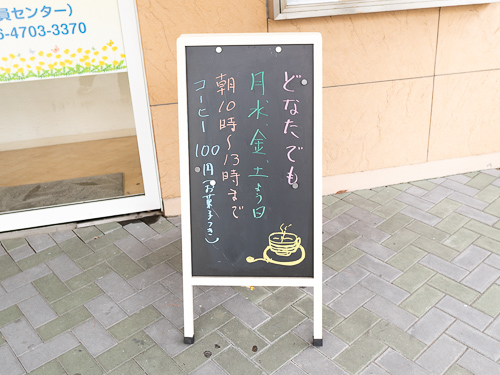 員センター)
6-4703-3370
どなたでも
月.水.金.土よう日
朝10時〜13時まで
コーヒー 100円(お菓子つき)